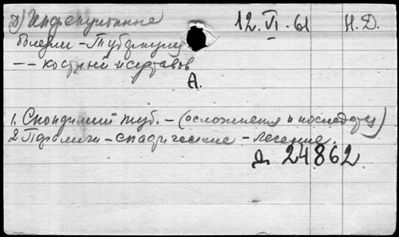 д) Инфекционные 12.VI-61 Н.Д.
болезни - Туберкулез
-- костный и суставов
А.
1. Спондилит туб. - (осложнения и последств.)
2 Параличи - спастические - лечение.
Д 24862